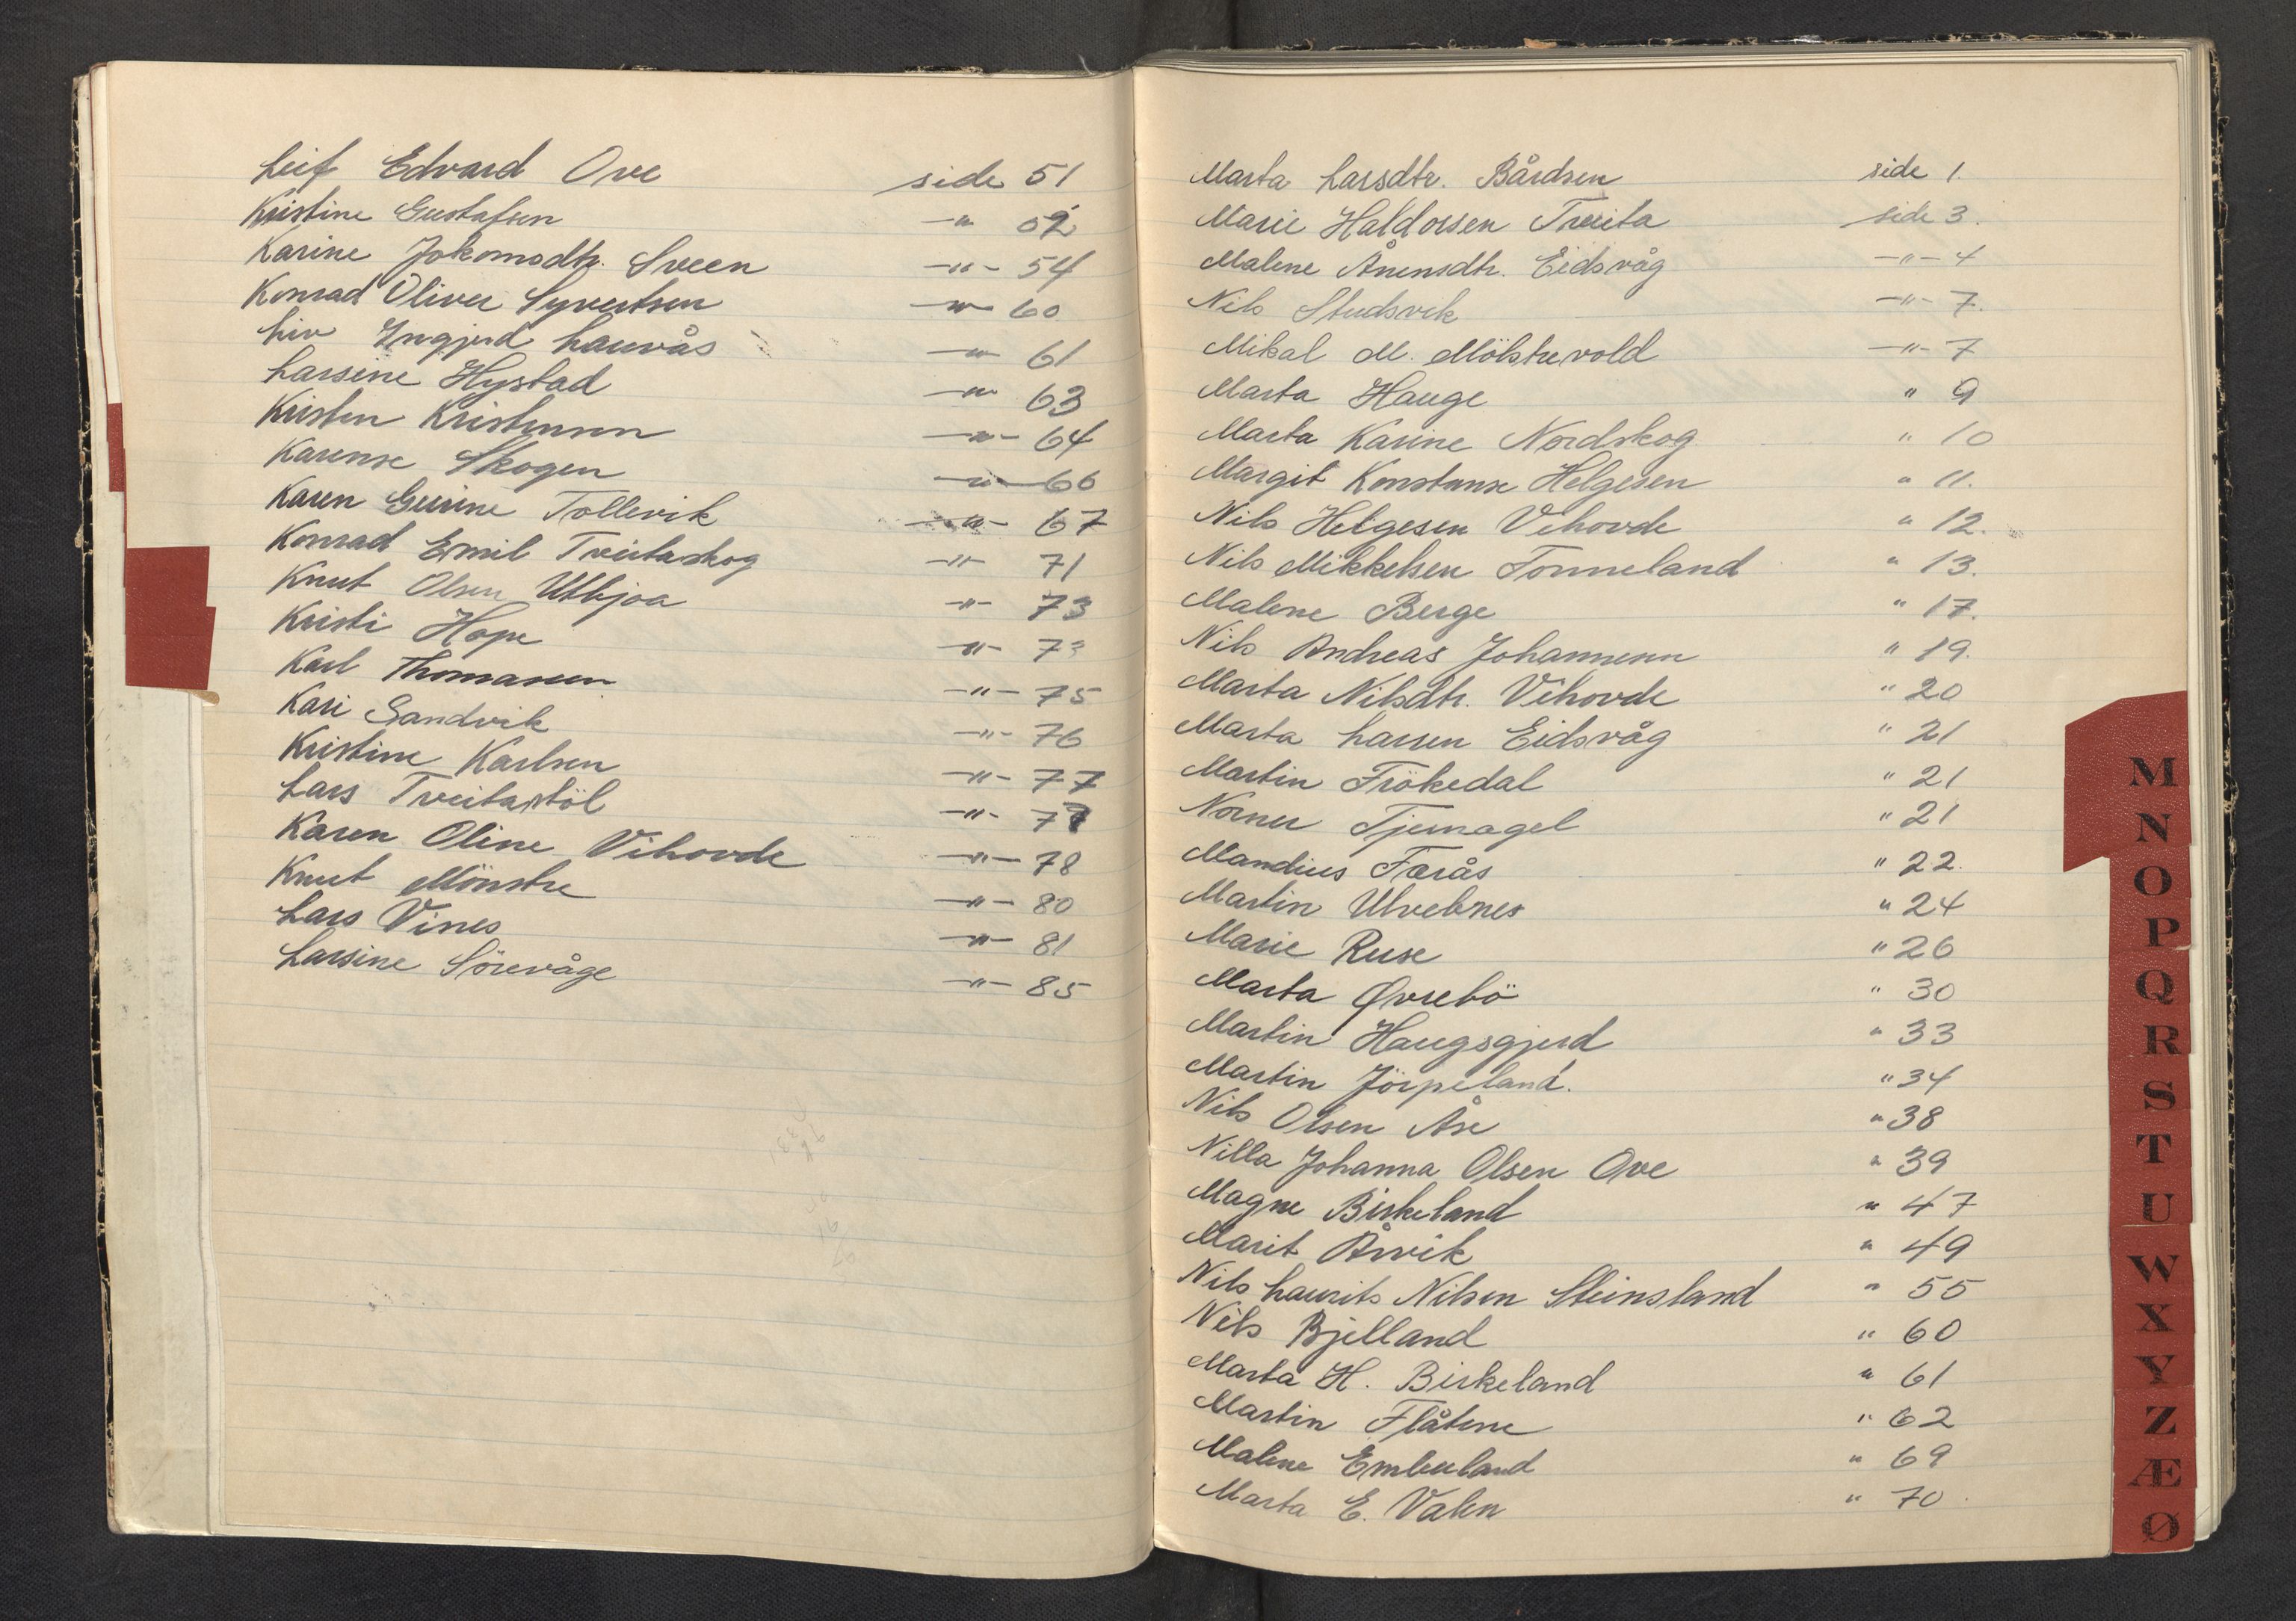 Leif Edvard Ove side 51
Kristine Gustafsen -"- 52
Karine Jakomsdtr. Sveen -"- 54
Konrad Oliver Syvertsen -"- 60
Liv Ingjerd Laurås -"- 61
Larsine Hystad -"- 63
Kristen Kristensen -"- 64
Karense Skogen -"- 66
Karen Gurine Tollevik -"- 67
Konrad Emil Tveitaskog -"- 71
Knut Olsen Utbjoa -"- 73
Kristi Hope -"- 73
Karl Thomassen -"- 75
Kari Sandvik -"- 76
Kristine Karlsen -"- 77
Lars Tveitastöl -"- 77
Karen Oline Vihovde -"- 78
Knut Mönstre -"- 80
Lars Vines -"- 81
Larsine Sörevåge -"- 85
Marta Larsdtr. Bårdsen side 1.
Marie Haldorsen Tveita side 3.
Malene Ånensdtr. Eidsvåg -"- 4
Nils Studsvik -"- 7.
Mikal M. Mölstrevold -"- 7
Marta Hauge " 9
Marta Karine Nordskog " 10
Margit Konstanse Helgesen " 11.
Nils Helgesen Vihovde " 12.
Nils Mikkelsen Tonneland " 13.
Malene Berge " 17.
Nils Andreas Johannesen " 19.
Marta Nilsdtr. Vihovde " 20
Marta Larsen Eidsvåg " 21
Martin Frökedal " 21
Norner Tjernagel " 21
Mandius Færås " 22.
Martin Ulvebnes " 24
Marie Ruse " 26
Marta Øvrebö " 30
Martin Haugsgjerd " 33
Martin Jörpeland. " 34
Nils Olsen Åse " 38
Nilla Johanna Olsen Ove " 39
Magne Birkeland " 47
Marit Årvik " 49
Nils Laurits Nilsen Steinsland " 55
Nils Bjelland " 60
Marta H. Birkeland " 61
Martin Flåtene " 62
Malene Emberland " 69
Marta E. Valen " 70.
M
N
O
P
Q
R
S
T
U
W
X
Y
Z
Æ
Ø